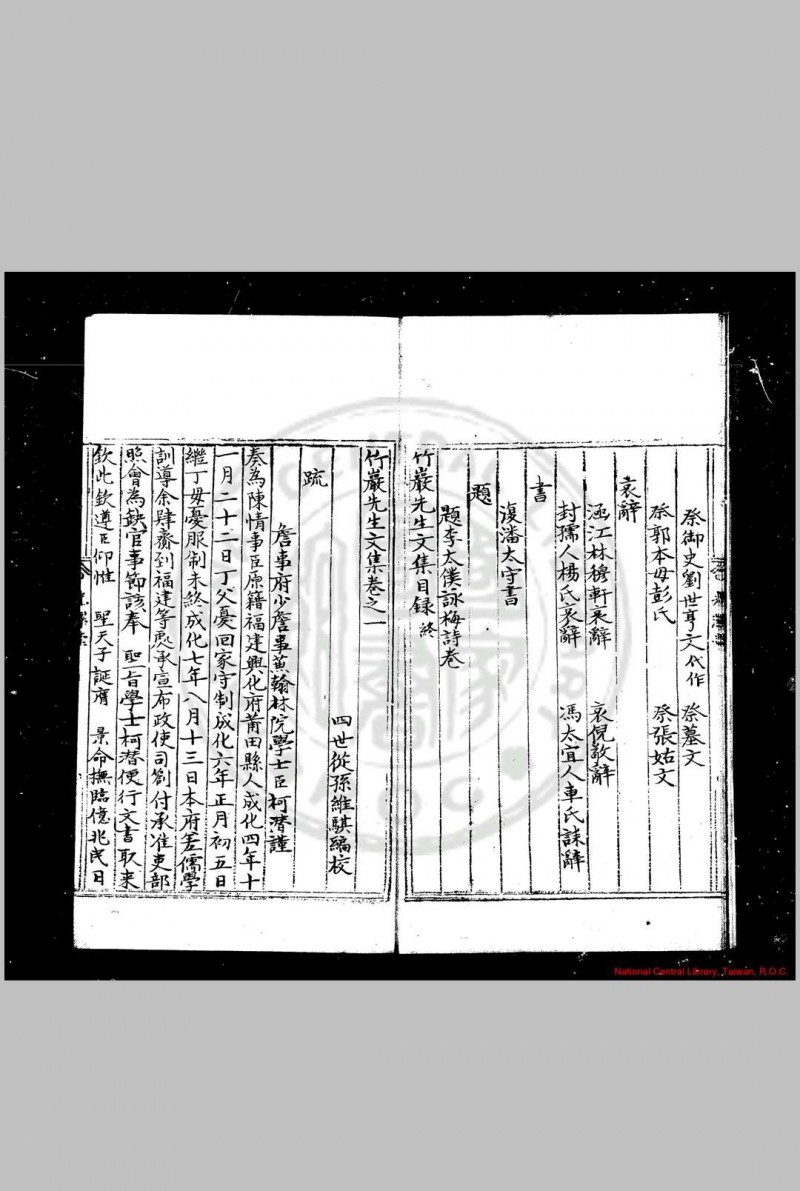 祭御史劉世亨文代作 祭墓文
祭郭本母彭氏 祭張姑文
哀辭
涵江林穆軒哀辭 哀倪敬辭
封孺人楊氏哀辭 馮太宜人車氏誄辭
書
復潘太守書
題
題李太僕詠梅詩卷
竹巖先生文集目録終
竹巖先生文集卷之一
四世從孫維騏編校
疏
詹事府少詹事兼翰林院學士臣柯潛謹
奏為陳情事臣原籍福建興化府莆田縣人成化四年十
一月二十二日丁父憂回家守制成化六年正月初五日
繼丁母憂服制未終成化七年八月十三日本府差儒學
訓導余肆齋到福建等處承宣布政使司劄付承准吏部
照會為缺官事節該奉 聖旨學士柯潛便行文書取来
欽此欽遵臣仰惟 聖天子誕膺 景命撫臨億兆民日
National Central Library, Taiwan, R.O.C.